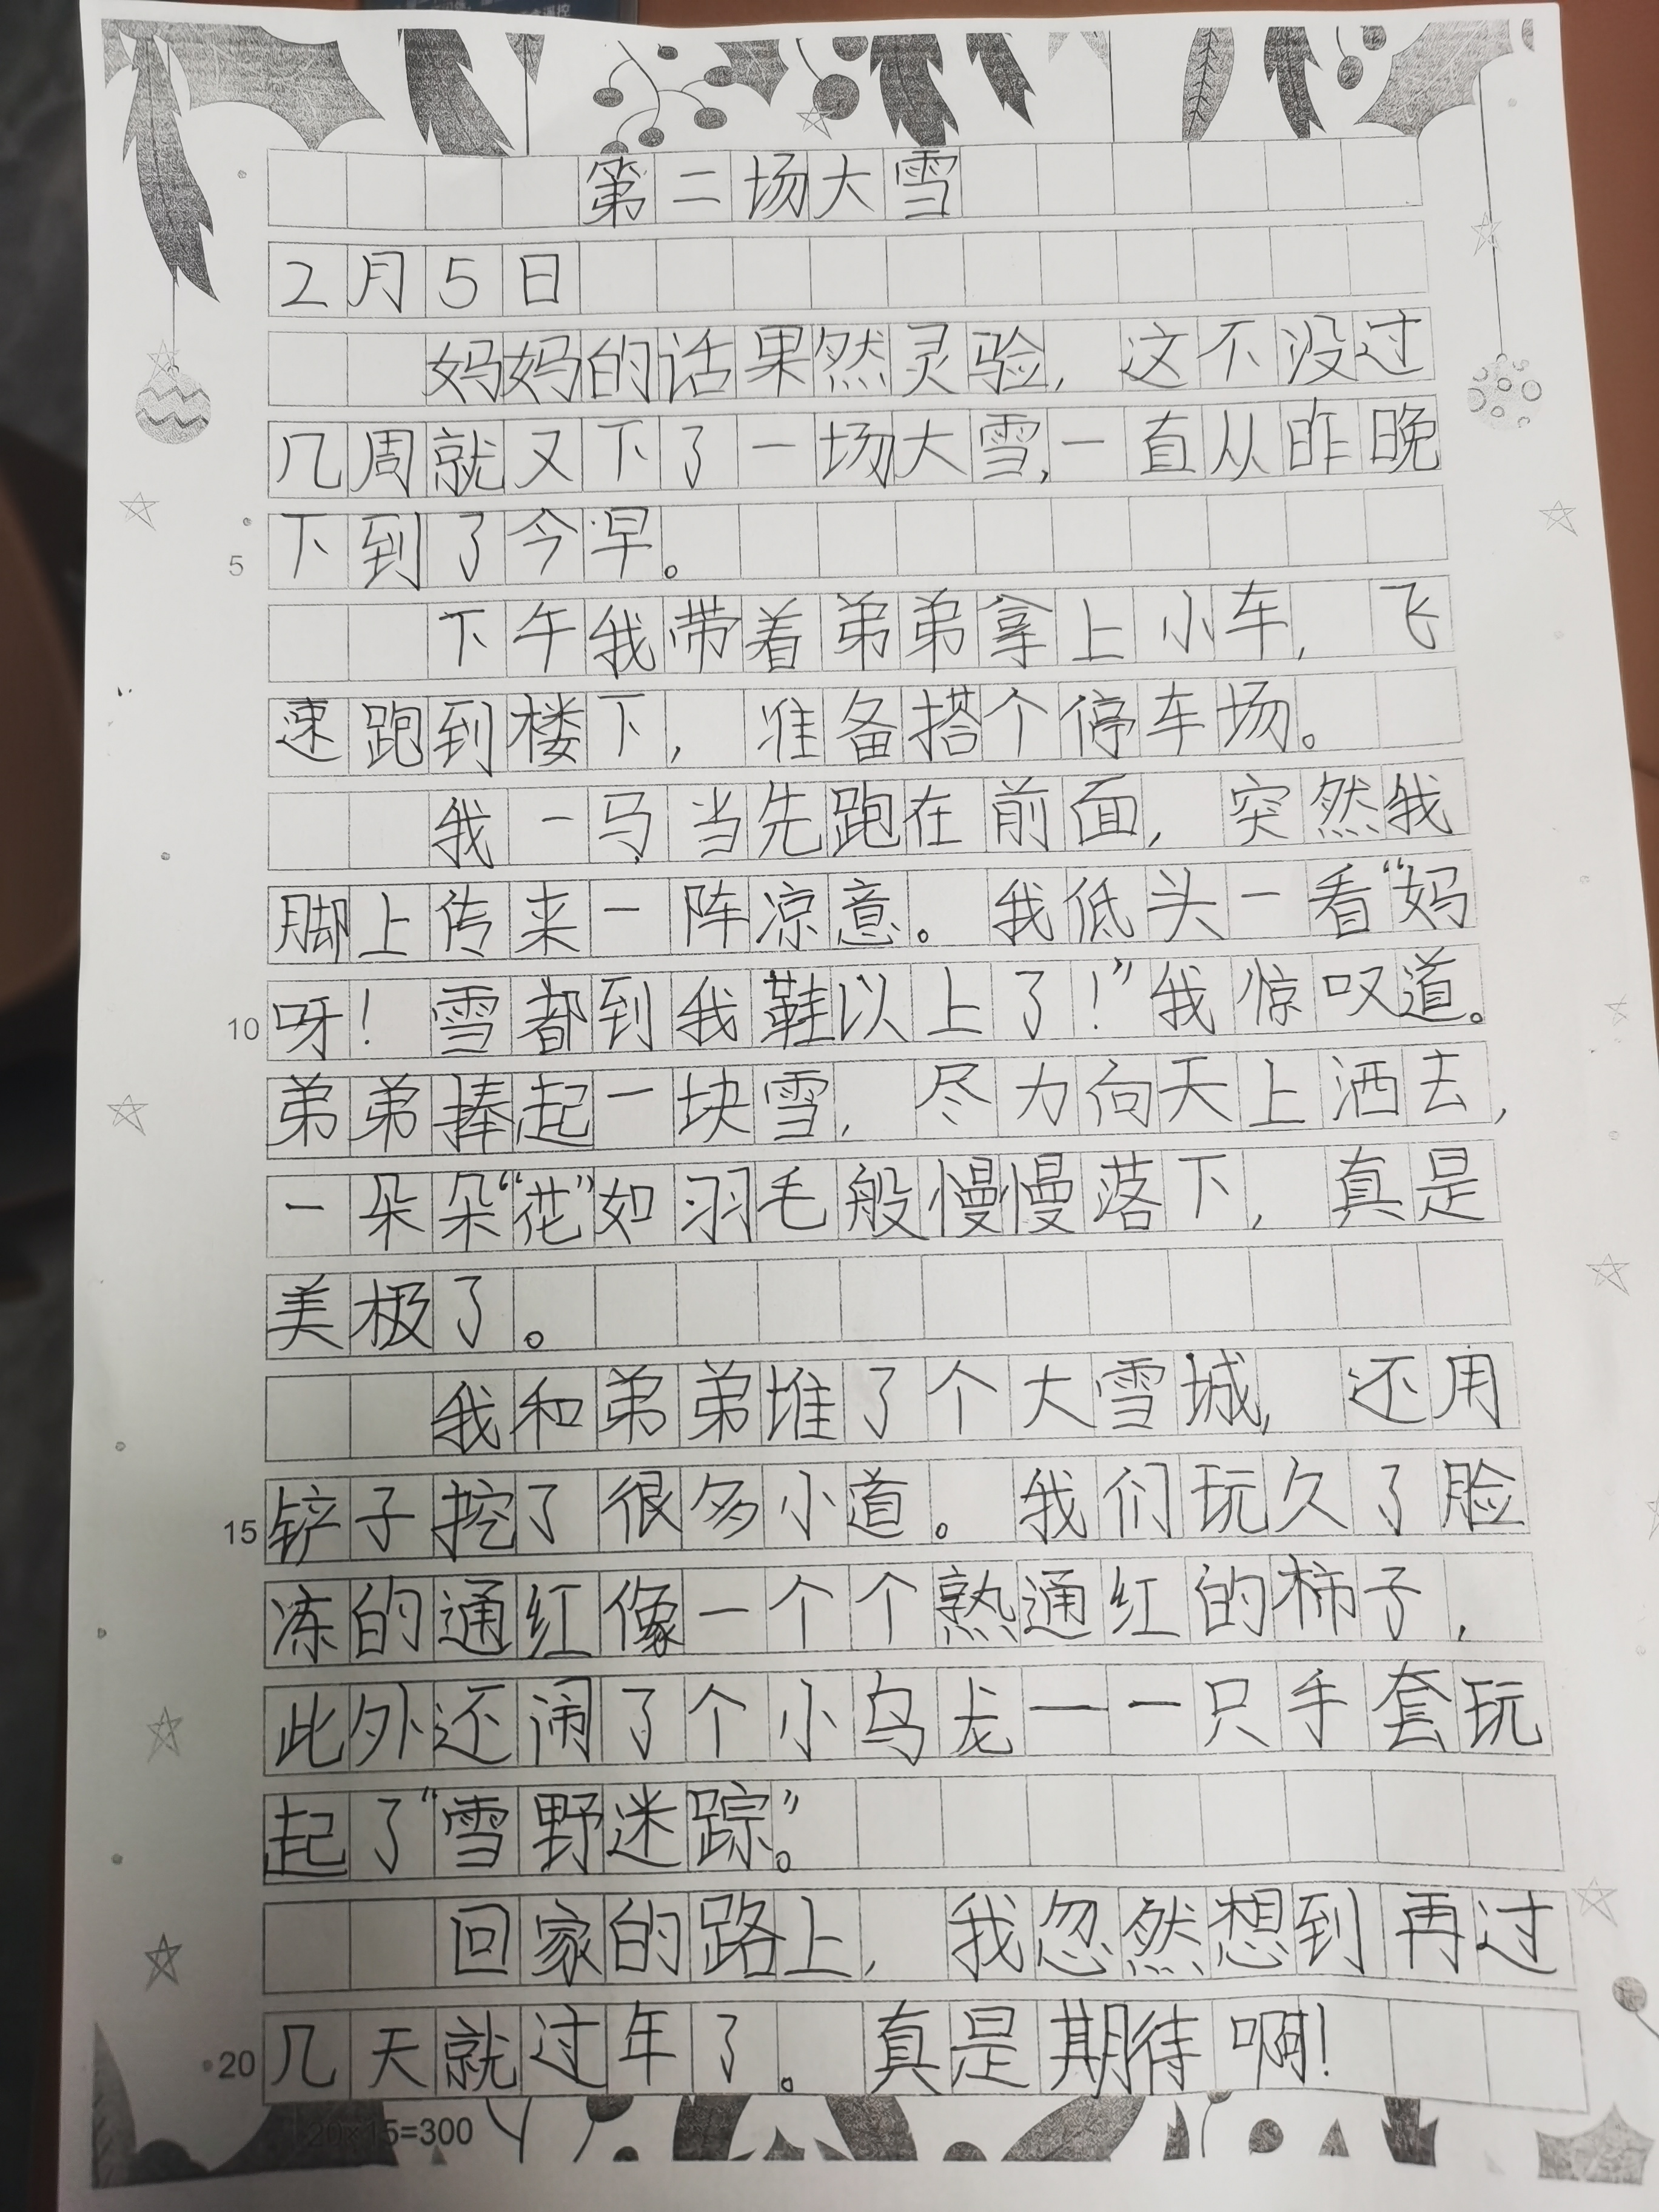 第二场大雪
2月5日
妈妈的话果然灵验，这不没过
几周就又下了一场大雪，一直从昨晚
5 下到了今早。
下午我带着弟弟拿上小车，飞
速跑到楼下，准备搭个停车场。
我一马当先跑在前面，突然我
脚上传来一阵凉意。我低头一看“妈
10 呀！雪都到我鞋以上了！”我惊叹道。
弟弟捧起一块雪，尽力向天上洒去，
一朵朵“花”如羽毛般慢慢落下，真是
美极了。
我和弟弟堆了个大雪城，还用
15 铲子挖了很多小道。我们玩久了脸
冻的通红像一个个熟通红的柿子，
此外还闹了个小乌龙——一只手套玩
起了“雪野迷踪。”
回家的路上，我忽然想到再过
20 几天就过年了。真是期待啊！
20×15=300